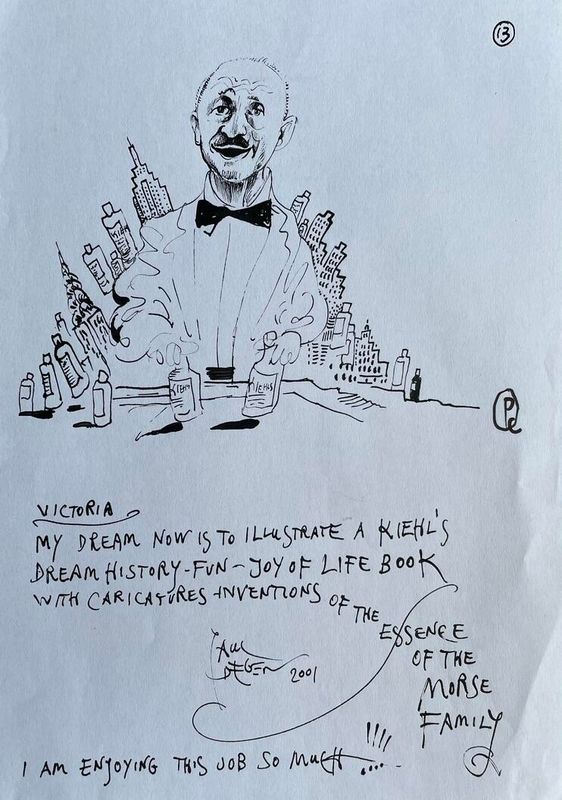 13
KIEHL'S
KIEHL'S
Pe
VICTORIA
MY DREAM NOW IS TO ILLUSTRATE A KIEHL'S
DREAM HISTORY-FUN-JOY OF LIFE BOOK
WITH CARICATURES-INVENTIONS OF THE ESSENCE
OF THE
MORSE
FAMILY
PAUL
DEGEN 2001
I AM ENJOYING THIS JOB SO MUCH !!!!